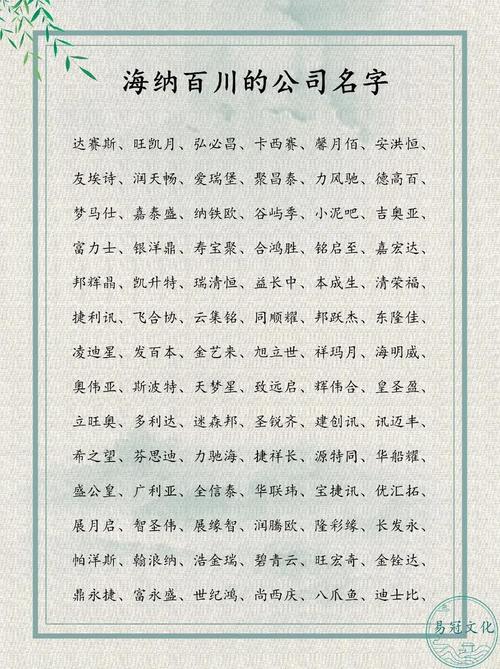 海纳百川的公司名字
达赛斯、旺凯月、弘必昌、卡西赛、馨月佰、安洪恒、
友埃诗、润天畅、爱瑞堡、聚昌泰、力风驰、德高百、
梦马仕、嘉泰盛、纳铁欧、谷屿季、小泥吧、吉奥亚、
富力士、银洋鼎、寿宝聚、合鸿胜、铭启至、嘉宏达、
邦辉晶、凯升特、瑞清恒、益长中、本成生、清荣福、
捷利讯、飞合协、云集铭、同顺耀、邦跃杰、东隆佳、
凌迪星、发百本、金艺来、旭立世、祥玛月、海明威、
奥伟亚、斯波特、天梦星、致远启、辉伟合、皇圣盈、
立旺奥、多利达、迷森邦、圣锐齐、建创讯、讯迈丰、
希之望、芬思迪、力驰海、捷祥长、源特同、华船耀、
盛公皇、广利亚、全信泰、华联玮、宝捷讯、优汇拓、
展月启、智圣伟、展缘智、润腾欧、隆彩缘、长发永、
帕洋斯、翰浪纳、浩金瑞、碧青云、旺宏奇、金铨达、
鼎永捷、富永盛、世纪鸿、尚西庆、八爪鱼、迪士比、
易冠文化